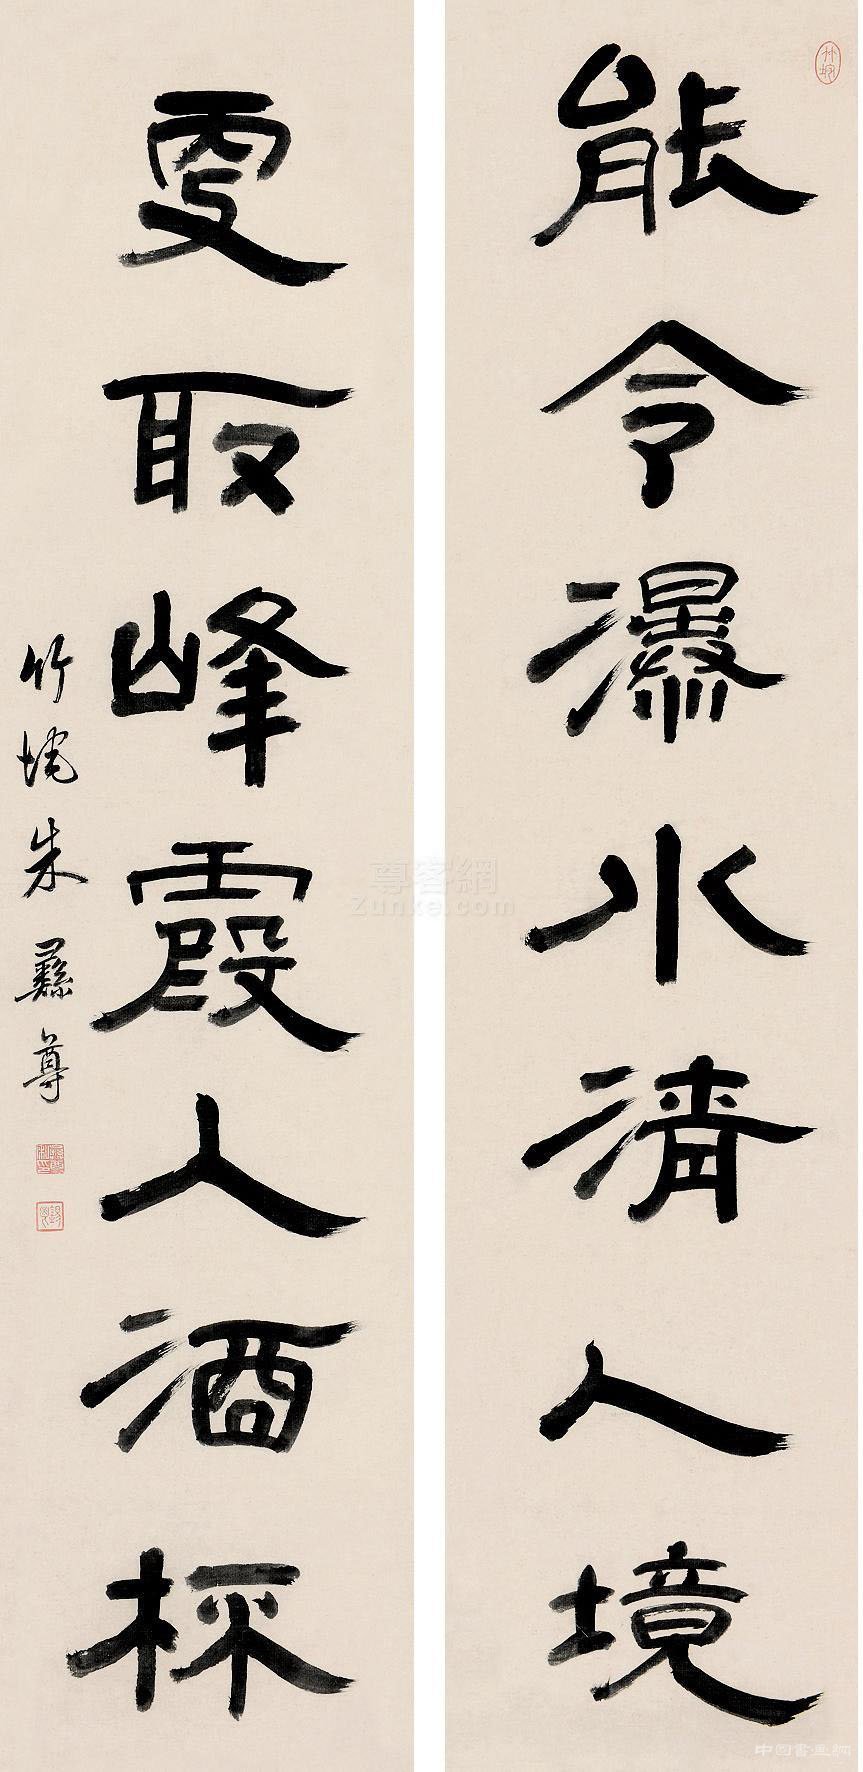 能令瀑水清人境
更取峰霞入酒杯
竹垞朱彝尊
竹垞
尊客網
Zunke.com
中国書画網